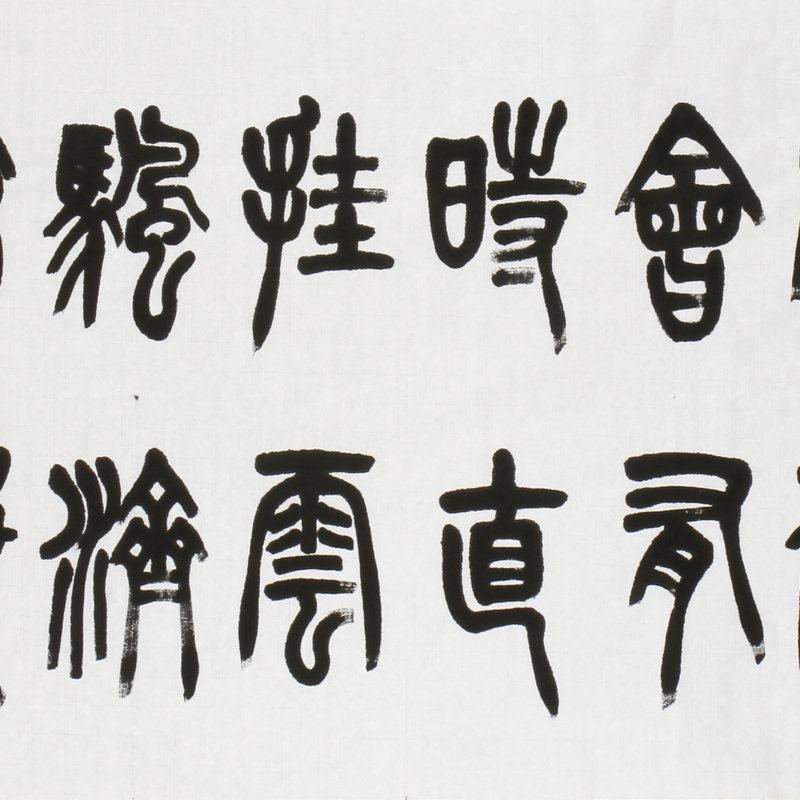 會有
時直
挂雲
颿濟